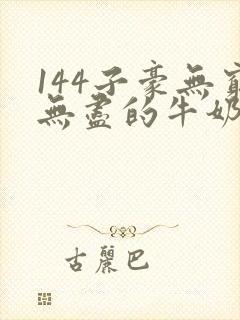 144子豪無窮
無盡的牛奶
古麗巴